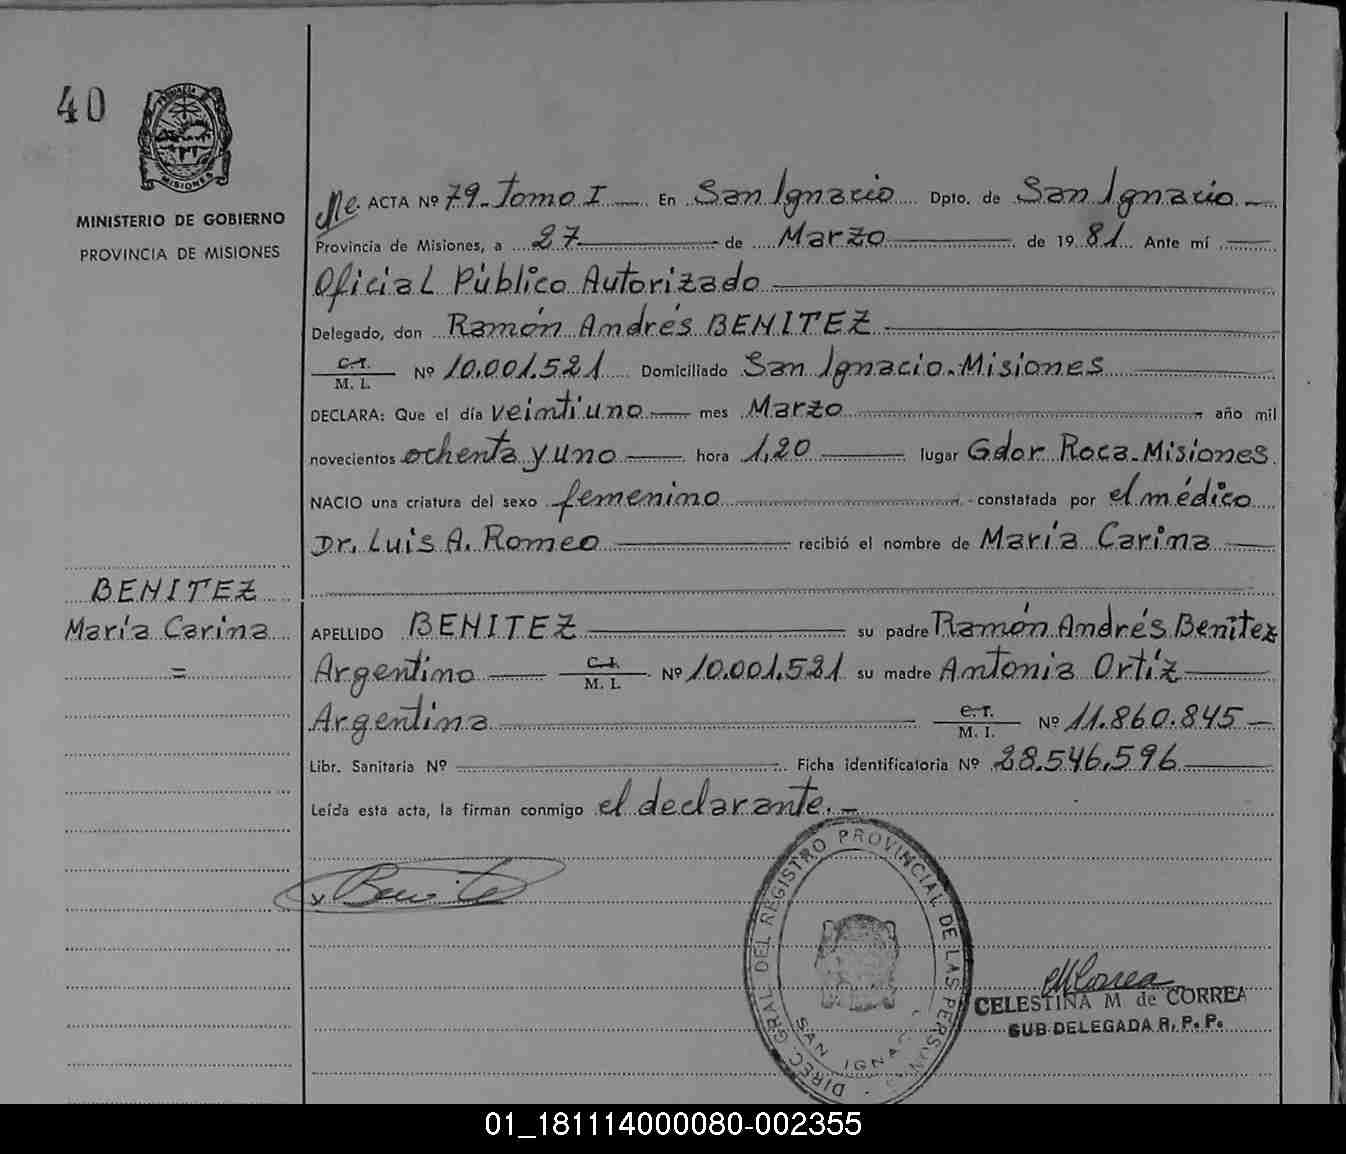 40
PROVINCIA DE
MISIONES
MINISTERIO DE GOBIERNO
PROVINCIA DE MISIONES
BENITEZ
María Carina
=
ACTA Nº 79 - Tomo I — En San Ignacio Dpto. de San Ignacio —
Provincia de Misiones, a 27 — de Marzo — de 1981 Ante mí —
Oficial Público Autorizado —
Delegado, don Ramón Andrés BENITEZ —
C. I.
M. I. Nº 10.001.521 Domiciliado San Ignacio - Misiones —
DECLARA: Que el día veintiuno — mes Marzo — año mil
novecientos ochenta y uno — hora 1,20 — lugar Gdor Roca - Misiones
NACIO una criatura del sexo femenino — constatada por el médico
Dr. Luis A. Romeo — recibió el nombre de María Carina —
APELLIDO BENITEZ — su padre Ramón Andrés Benitez
Argentino — C. I.
M. I. Nº 10.001.521 su madre Antonia Ortíz —
Argentina — C. I.
M. I. Nº 11.860.845 —
Libr. Sanitaria Nº — Ficha identificatoria Nº 28.546.596 —
Leída esta acta, la firman conmigo el declarante. —
x Benitez
DIREC. GRAL DEL REGISTRO PROVINCIAL DE LAS PERSONAS
SAN IGNACIO
MCorrea
CELESTINA M de CORREA
SUB DELEGADA R. P. P.
01_181114000080-002355